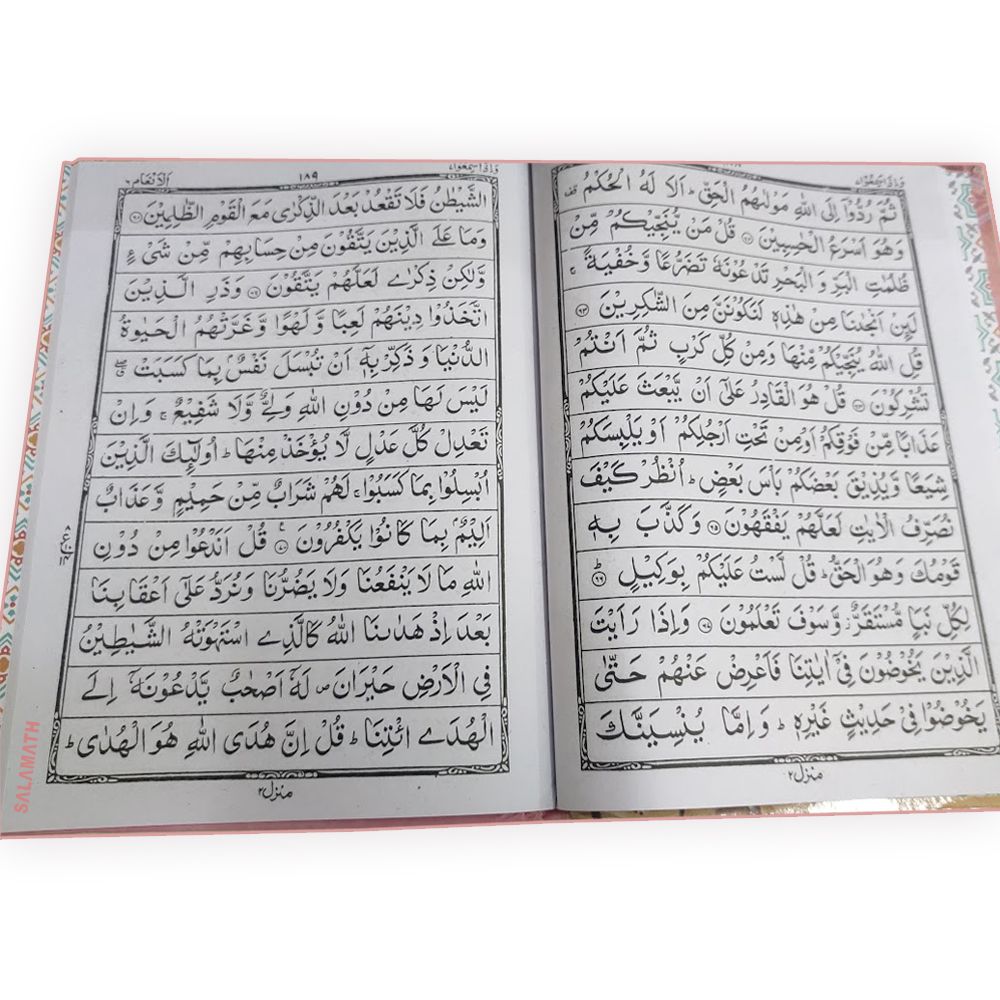 وَاِذَا سَمِعُوْا
ثُمَّ رُدُّوْۤا اِلَى اللّٰهِ مَوْلٰىهُمُ الْحَقِّ ؕ اَلَا لَهُ الْحُكْمُ
وَهُوَ اَسْرَعُ الْحٰسِبِيْنَ ۝۶۲ قُلْ مَنْ يُّنَجِّيْكُمْ مِّنْ
ظُلُمٰتِ الْبَرِّ وَ الْبَحْرِ تَدْعُوْنَهٗ تَضَرُّعًا وَّخُفْيَةً ۚ
لَىِٕنْ اَنْجٰىنَا مِنْ هٰذِهٖ لَنَكُوْنَنَّ مِنَ الشّٰكِرِيْنَ ۝۶۳
قُلِ اللّٰهُ يُنَجِّيْكُمْ مِّنْهَا وَمِنْ كُلِّ كَرْبٍ ثُمَّ اَنْتُمْ
تُشْرِكُوْنَ ۝۶۴ قُلْ هُوَ الْقَادِرُ عَلٰۤى اَنْ يَّبْعَثَ عَلَيْكُمْ
عَذَابًا مِّنْ فَوْقِكُمْ اَوْمِنْ تَحْتِ اَرْجُلِكُمْ اَوْ يَلْبِسَكُمْ
شِيَعًا وَّيُذِيْقَ بَعْضَكُمْ بَاْسَ بَعْضٍ ؕ اُنْظُرْ كَيْفَ
نُصَرِّفُ الْاٰيٰتِ لَعَلَّهُمْ يَفْقَهُوْنَ ۝۶۵ وَكَذَّبَ بِهٖ
قَوْمُكَ وَهُوَ الْحَقُّ ؕ قُلْ لَّسْتُ عَلَيْكُمْ بِوَكِيْلٍ ۝۶۶
لِكُلِّ نَبَاٍ مُّسْتَقَرٌّ ؗ وَّسَوْفَ تَعْلَمُوْنَ ۝۶۷ وَاِذَا رَاَيْتَ
الَّذِيْنَ يَخُوْضُوْنَ فِيْۤ اٰيٰتِنَا فَاَعْرِضْ عَنْهُمْ حَتّٰى
يَخُوْضُوْا فِيْ حَدِيْثٍ غَيْرِهٖ ؕ وَ اِمَّا يُنْسِيَنَّكَ
منزل ٢
وَاِذَا سَمِعُوْا ٧
١٨٩
اَلْاَنْعَام ٦
الشَّيْطٰنُ فَلَا تَقْعُدْ بَعْدَ الذِّكْرٰى مَعَ الْقَوْمِ الظّٰلِمِيْنَ ۝۶۸
وَمَا عَلَى الَّذِيْنَ يَتَّقُوْنَ مِنْ حِسَابِهِمْ مِّنْ شَيْءٍ
وَّلٰكِنْ ذِكْرٰى لَعَلَّهُمْ يَتَّقُوْنَ ۝۶۹ وَذَرِ الَّذِيْنَ
اتَّخَذُوْا دِيْنَهُمْ لَعِبًا وَّ لَهْوًا وَّ غَرَّتْهُمُ الْحَيٰوةُ
الدُّنْيَا وَ ذَكِّرْ بِهٖۤ اَنْ تُبْسَلَ نَفْسٌۢ بِمَا كَسَبَتْ
لَيْسَ لَهَا مِنْ دُوْنِ اللّٰهِ وَلِيٌّ وَّلَا شَفِيْعٌ ۚ وَاِنْ
تَعْدِلْ كُلَّ عَدْلٍ لَّا يُؤْخَذْ مِنْهَا ؕ اُولٰٓىِٕكَ الَّذِيْنَ
اُبْسِلُوْا بِمَا كَسَبُوْا ۚ لَهُمْ شَرَابٌ مِّنْ حَمِيْمٍ وَّعَذَابٌ
اَلِيْمٌۢ بِمَا كَانُوْا يَكْفُرُوْنَ ۝۷۰ قُلْ اَنَدْعُوْا مِنْ دُوْنِ
اللّٰهِ مَا لَا يَنْفَعُنَا وَلَا يَضُرُّنَا وَنُرَدُّ عَلٰۤى اَعْقَابِنَا
بَعْدَ اِذْ هَدٰىنَا اللّٰهُ كَالَّذِى اسْتَهْوَتْهُ الشَّيٰطِيْنُ
فِي الْاَرْضِ حَيْرَانَ ۪ لَهٗۤ اَصْحٰبٌ يَّدْعُوْنَهٗۤ اِلَى
الْهُدَى ائْتِنَا ؕ قُلْ اِنَّ هُدَى اللّٰهِ هُوَ الْهُدٰى ؕ
منزل ٢
SALAMATH